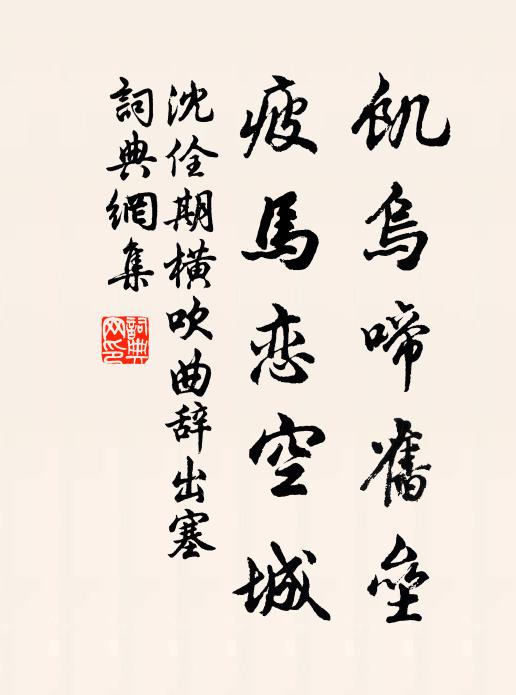 飢烏啼舊壘
疲馬恋空城
沈佺期横吹曲辞出塞
詞典網集
詞典
网印